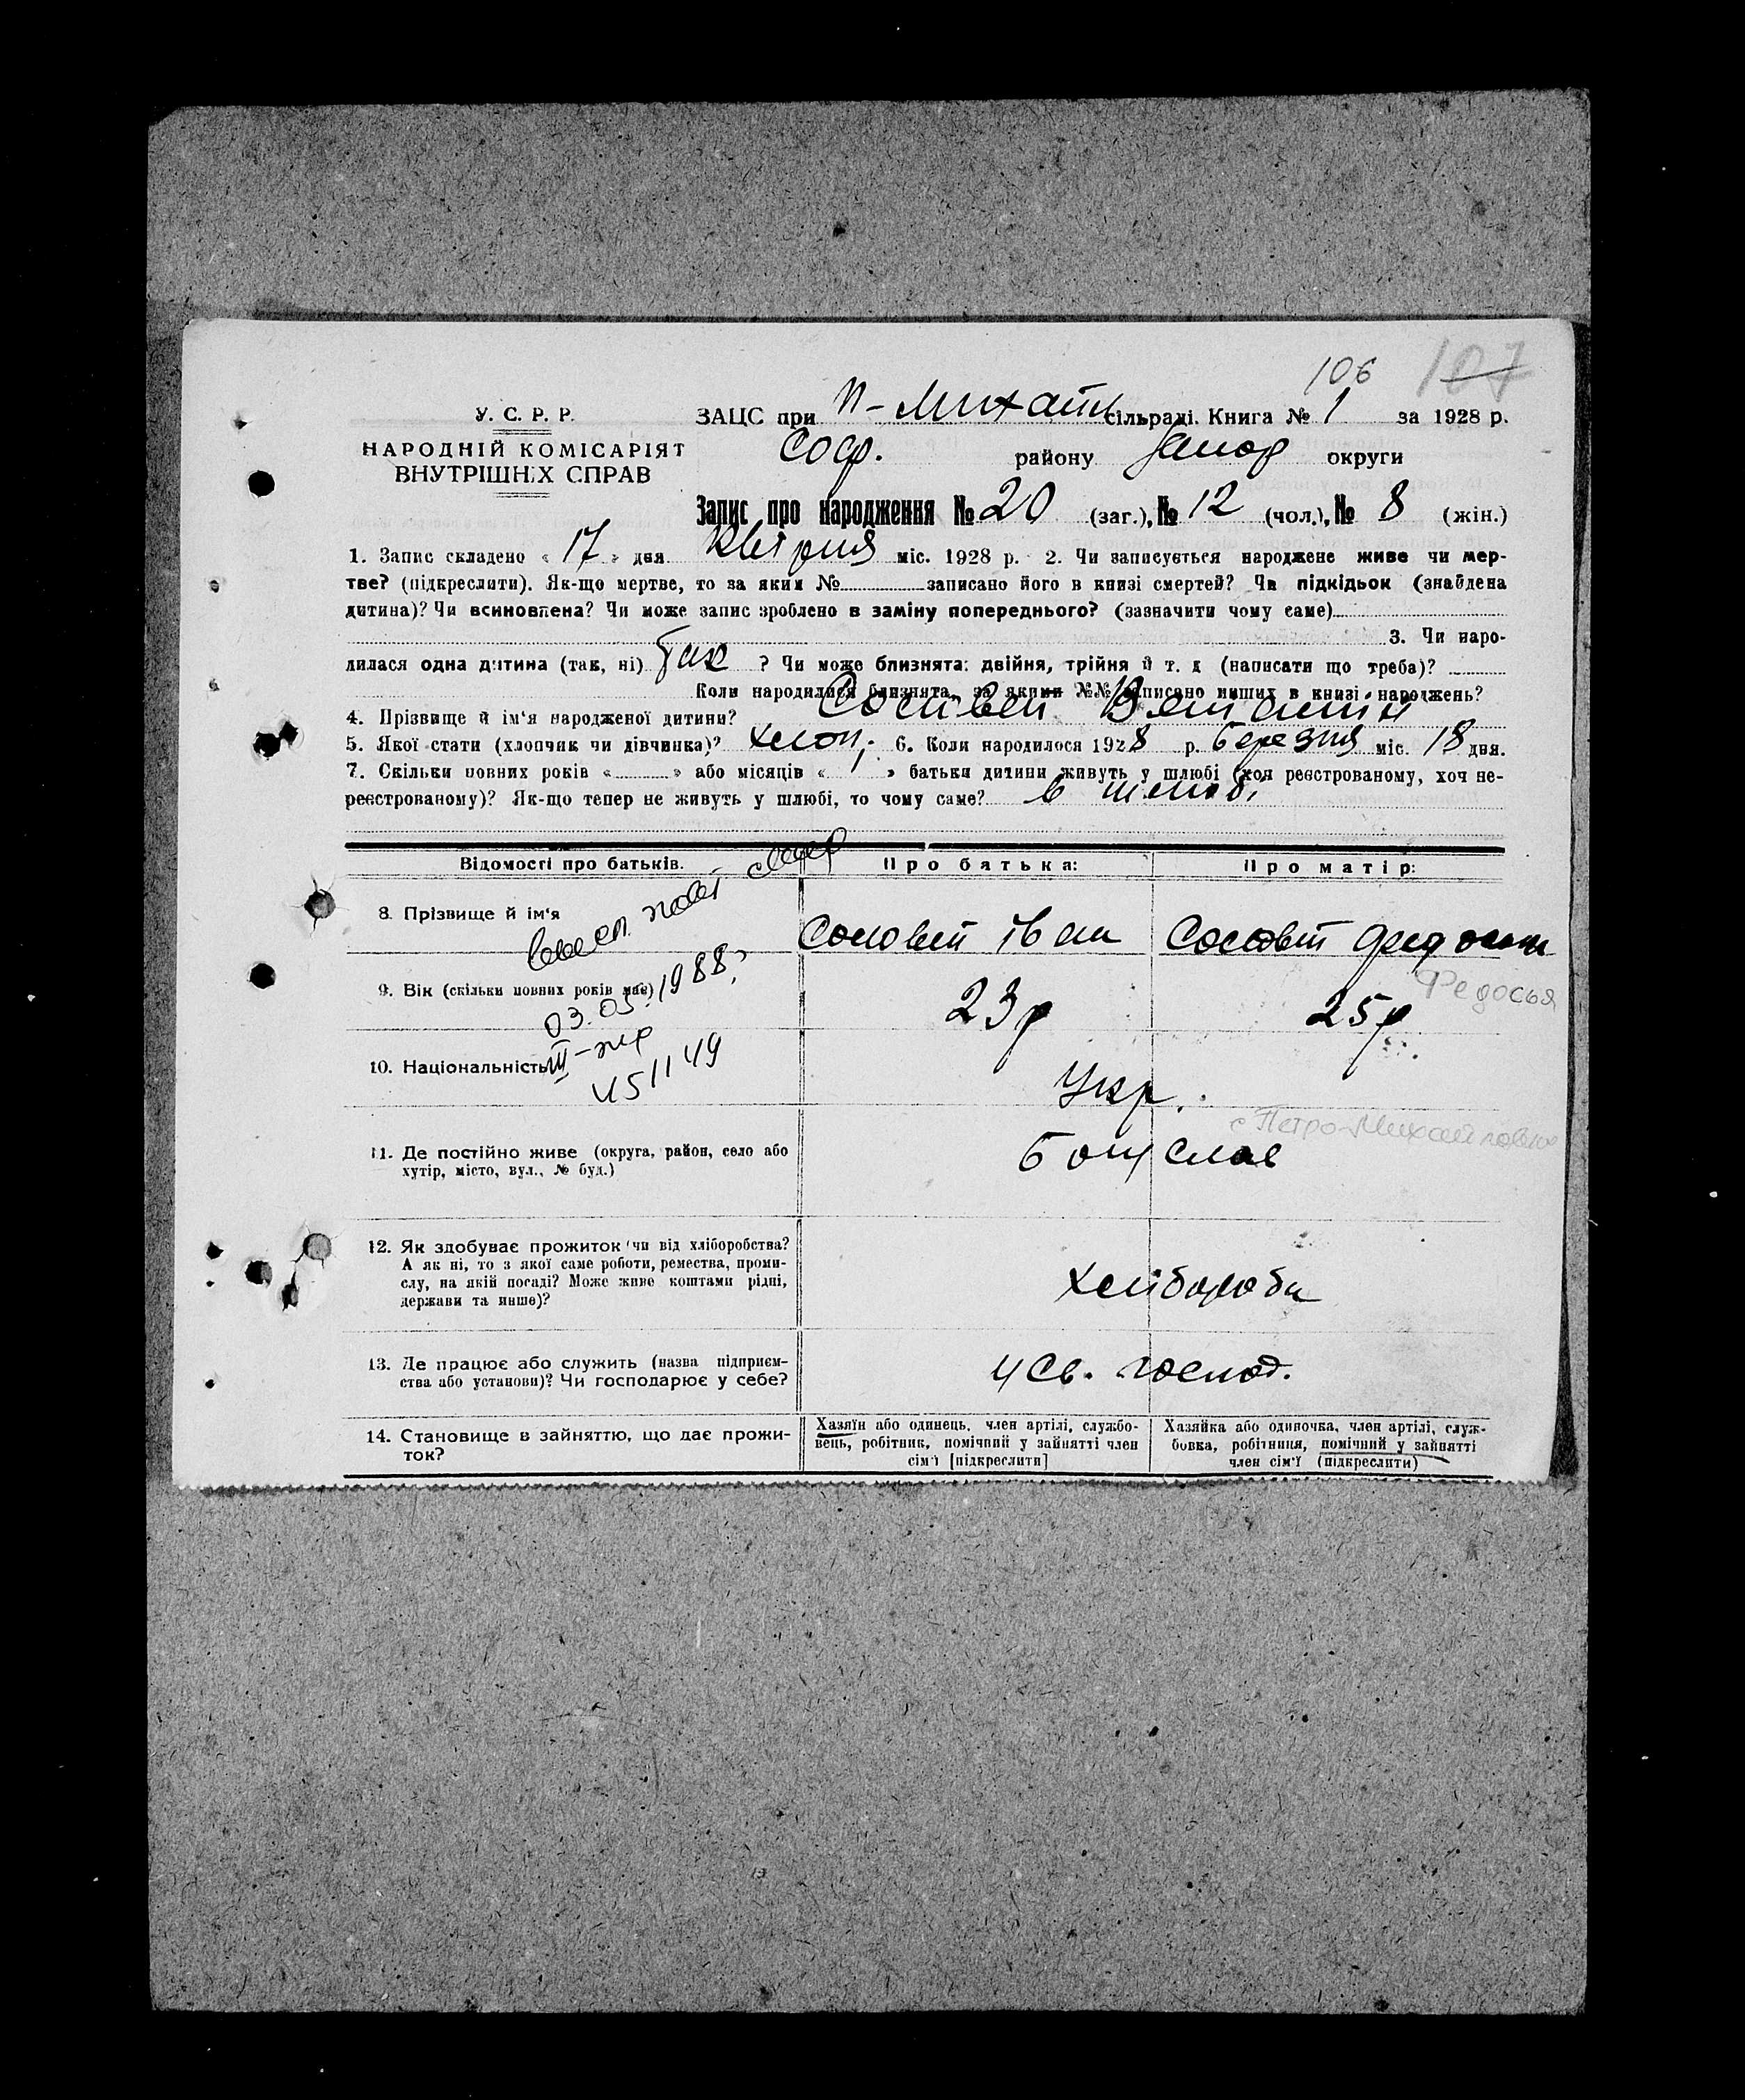 106 107
У. С. Р. Р.
НАРОДНІЙ КОМІСАРІЯТ
ВНУТРІШНІХ СПРАВ
ЗАЦС при П-Михайл сільраді. Книга № 1 за 1928 р.
Соф. району Запор округи
Запис про народження № 20 (заг.), № 12 (чол.), № 8 (жін.)
1. Запис складено « 17 » дня Квітня міс. 1928 р. 2. Чи записується народжене живе чи мер-
тве? (підкреслити). Як-що мертве, то за яким № записано його в книзі смертей? Чи підкідьок (знайдена
дитина)? Чи всиновлена? Чи може запис зроблено в заміну попереднього? (зазначити чому саме)
3. Чи наро-
дилася одна дитина (так, ні) так ? Чи може близнята: двійня, трійня й т. д (написати що треба)?
Коли народилися близнята, за якими №№ записано инших в книзі народжень?
4. Прізвище й ім'я народженої дитини? Соловей
5. Якої стати (хлопчик чи дівчинка)? хлоп. 6. Коли народилося 1928 р. березня міс. 18 дня.
7. Скільки повних років « » або місяців « » батьки дитини живуть у шлюбі (хоч реєстрованому, хоч не-
реєстрованому)? Як-що тепер не живуть у шлюбі, то чому саме? в шлюбі
Відомості про батьків. Про батька: Про матір:
8. Прізвище й ім'я Соловей Іван Соловей Федосія
Федосья
9. Вік (скільки повних років має) 23 р 25 р
03.05.1988
10. Національність Укр.
III-жр
451149
с Петро-Михайловка
11. Де постійно живе (округа, район, село або
хутір, місто, вул., № буд.)
12. Як здобуває прожиток (чи від хліборобства?
А як ні, то з якої саме роботи, ремества, проми-
слу, на якій посаді? Може живе коштами рідні,
держави та инше)?
хлібороби
13. Де працює або служить (назва підприєм-
ства або установи)? Чи господарює у себе?
у св. господ.
14. Становище в зайняттю, що дає прожи-
ток?
Хазяїн або одинець, член артілі, службо-
вець, робітник, помічний у зайнятті член
сім'ї [підкреслити]
Хазяйка або одиночка, член артілі, служ-
бовка, робітниця, помічний у зайнятті
член сім'ї (підкреслити)